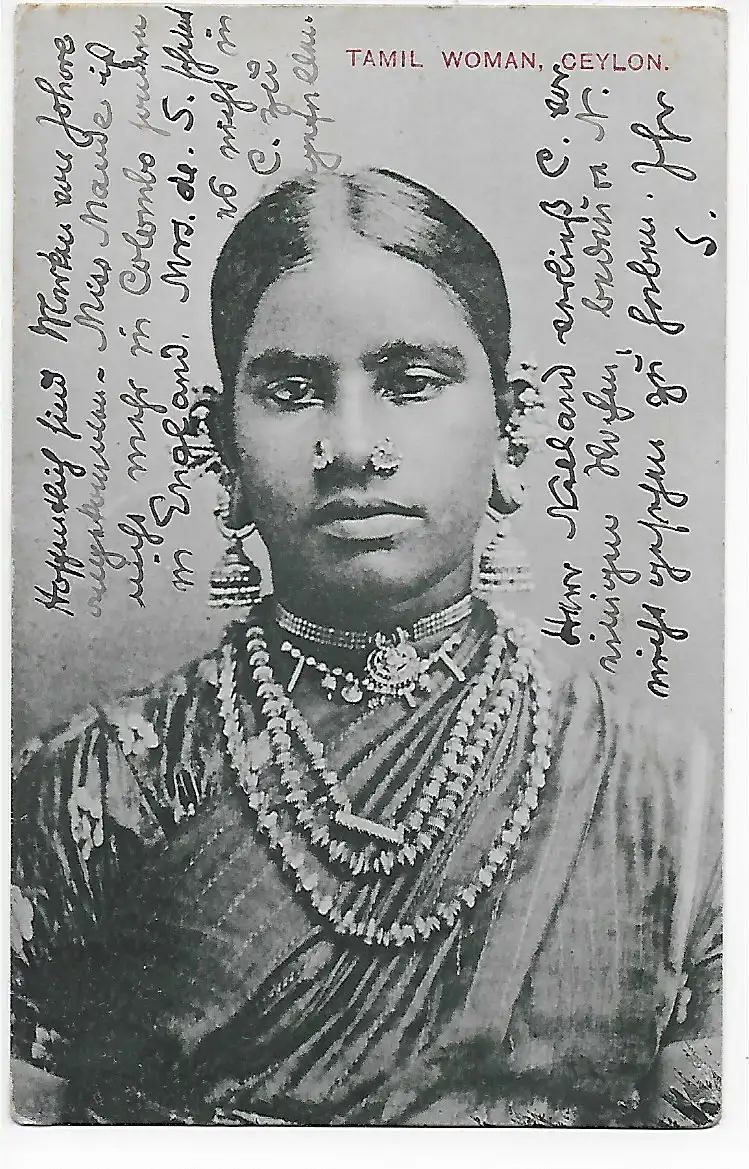 TAMIL WOMAN, CEYLON.
Hoffentlich sind Marken aus Johore
angekommen – Miss Maude ist
nicht mehr in Colombo sondern
in England. Mrs. de. S. schien
es nicht in
C. zu
gefallen.
Herr verließ C. vor
einigen Wochen, N.
nicht gesehen zu haben. Ihr
S.